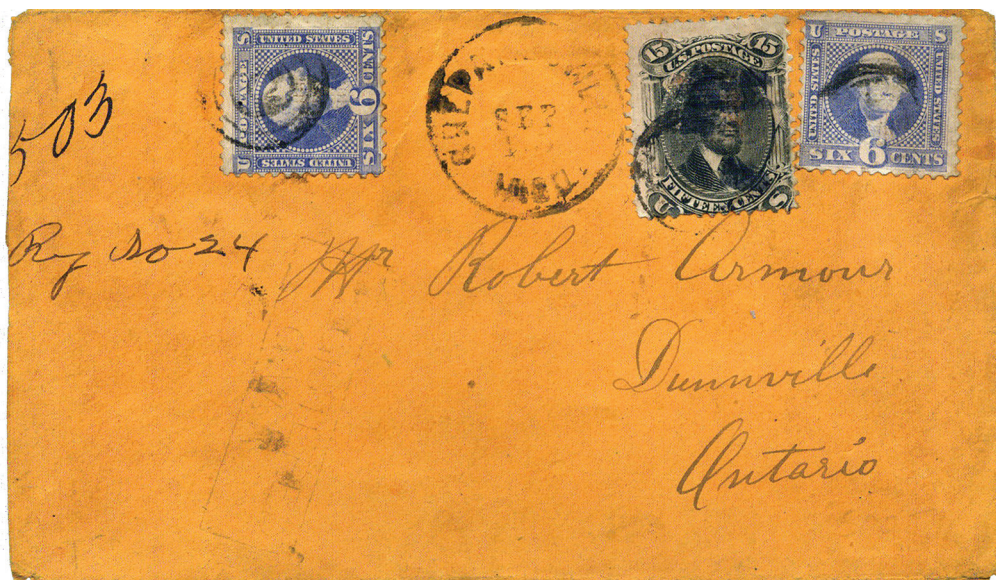 UNITED STATES
U POSTAGE S
SIX 6 CENTS
UNITED STATES
SEP
15 15
U.S. POSTAGE
FIFTEEN CENTS
U S
U POSTAGE S
UNITED STATES
UNITED STATES
SIX 6 CENTS
503
Reg No 24
Mr Robert Armour
Dunnville
Ontario